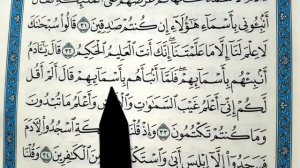 أَنۢبِـُٔونِى بِأَسْمَآءِ هَٰٓؤُلَآءِ إِن كُنتُمْ صَٰدِقِينَ ٣١ قَالُوا۟ سُبْحَٰنَكَ
لَا عِلْمَ لَنَآ إِلَّا مَا عَلَّمْتَنَآ إِنَّكَ أَنتَ ٱلْعَلِيمُ ٱلْحَكِيمُ ٣٢ قَالَ يَٰٓـَٔادَمُ
أَنۢبِئْهُم بِأَسْمَآئِهِمْ فَلَمَّآ أَنۢبَأَهُم بِأَسْمَآئِهِمْ قَالَ أَلَمْ أَقُل
لَّكُمْ إِنِّىٓ أَعْلَمُ غَيْبَ ٱلسَّمَٰوَٰتِ وَأَعْلَمُ مَا تُبْدُونَ
وَمَا كُنتُمْ تَكْتُمُونَ ٣٣ وَإِذْ قُلْنَا ٱسْجُدُوا۟ لِءَادَمَ
فَسَجَدُوٓا۟ إِلَّآ إِبْلِيسَ أَبَىٰ مِنَ ٱلْكَٰفِرِينَ ٣٤ وَقُلْنَا